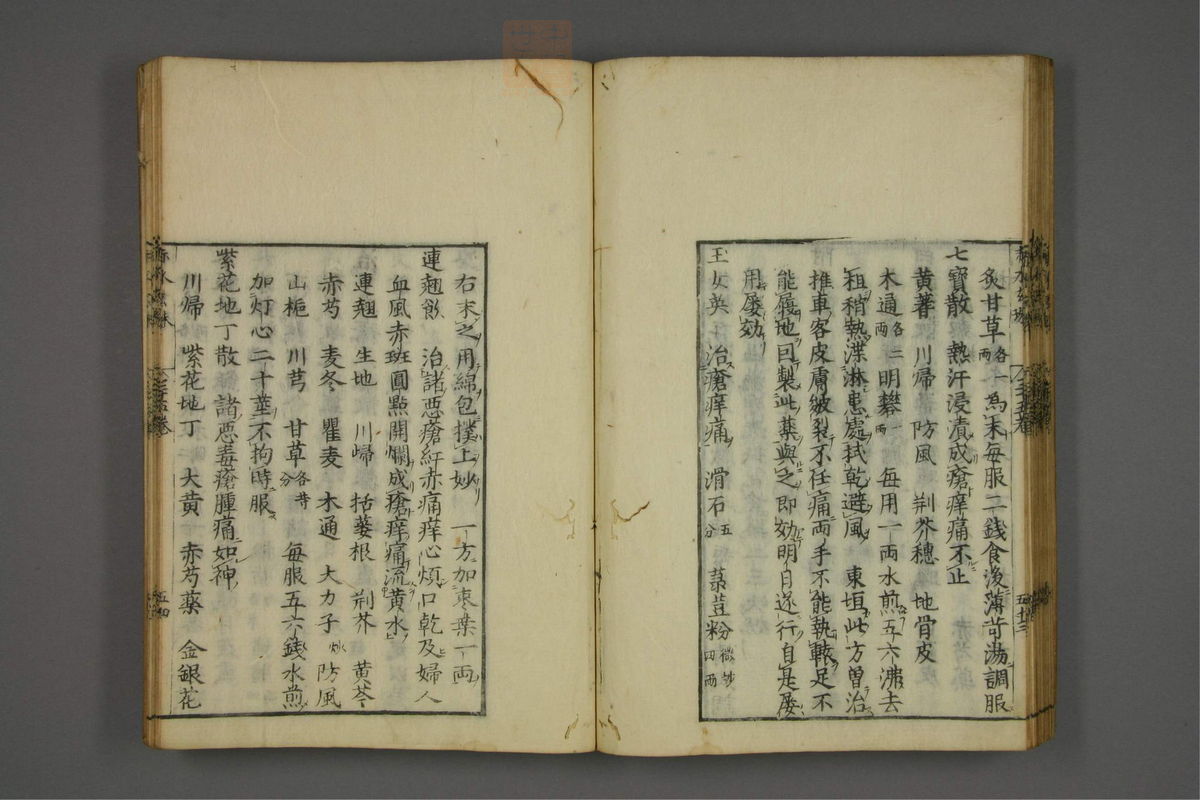 炙甘草各一両為末毎服二錢食後薄苛湯調服
七寶散 熱汗浸漬成瘡痒痛不止
黄蓍 川帰 防風 荆芥穗 地骨皮
木通各二両明礬一両 毎用一両水煎五六沸去
柤稍熱渫淋患處拭乾避風 東垣此方曽治
推車客皮膚皴裂不任痛両手不能執轅足不
能履地囙製此薬與之即効明日遂行自是屡
用屡効
玉女英 治瘡痒痛 滑石五分 菉豆粉微炒四両
右末之用綿包撲上妙 一方加枣葉一両
連翹飲 治諸悪瘡紅赤痛痒心煩口乾及婦人
血風赤斑圓點開爛成瘡痒痛流黄水
連翹 生地 川帰 括蔞根 荆芥 黄芩
赤芍 麦冬 瞿麦 木通 大力子炒 防風
山梔 川芎 甘草各等分 毎服五六錢水煎
加灯心二十莖不拘時服
紫花地丁散 諸悪毒瘡腫痛如神
川帰 紫花地丁 大黄 赤芍薬 金銀花